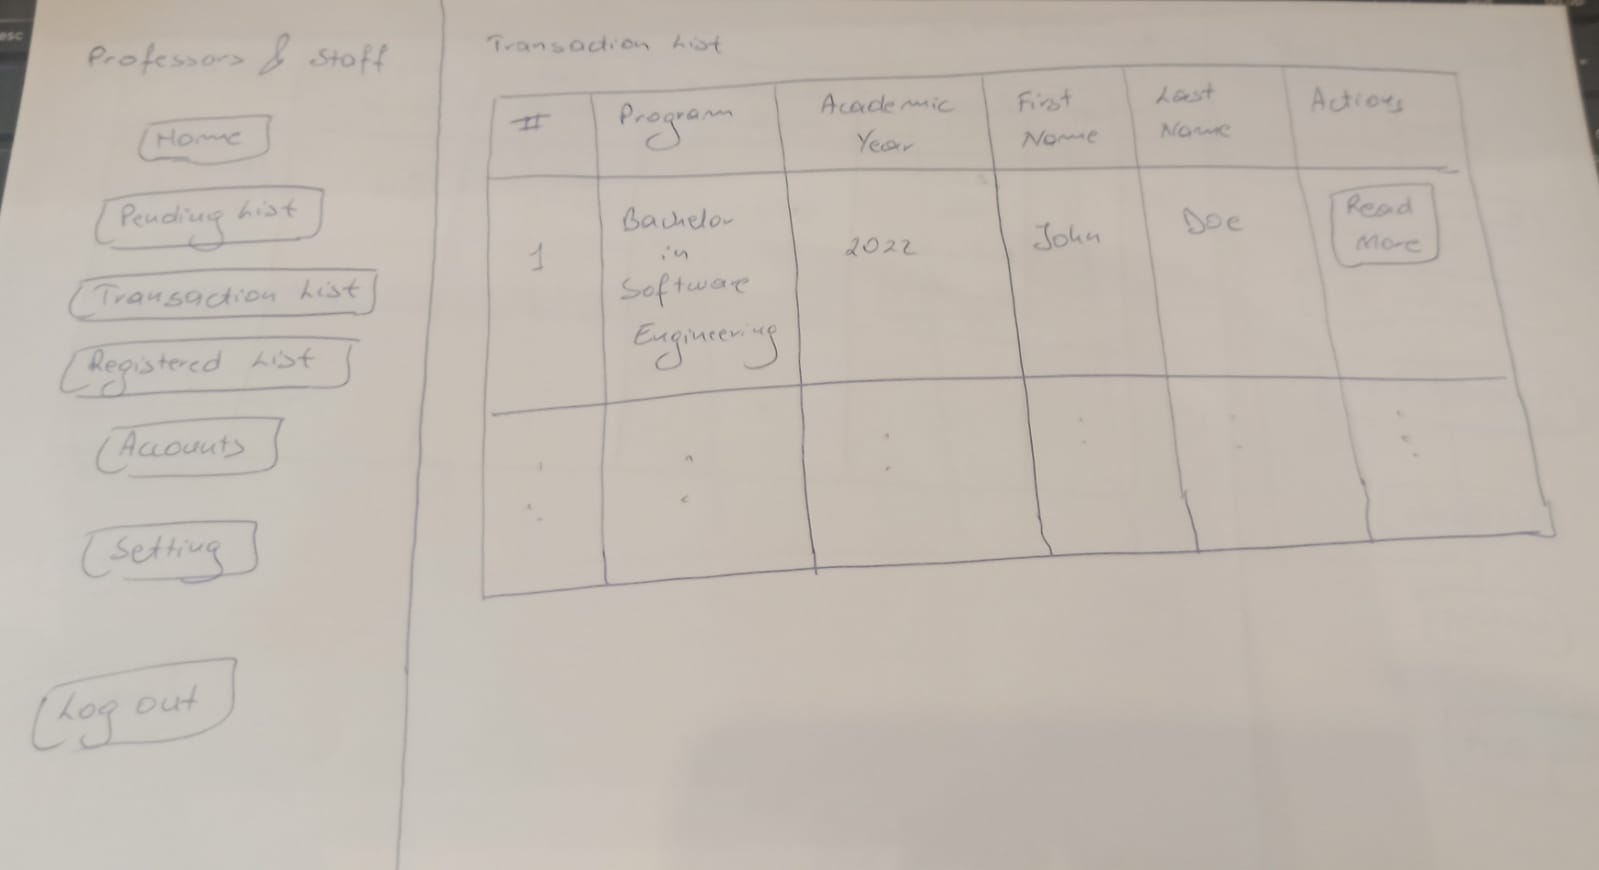 esc
Professors & Staff
Home
Pending List
Transaction List
Registered List
Accounts
Setting
Log out
Transaction List
# Program Academic Year First Name Last Name Actions
1 Bachelor in Software Engineering 2022 John Doe Read More